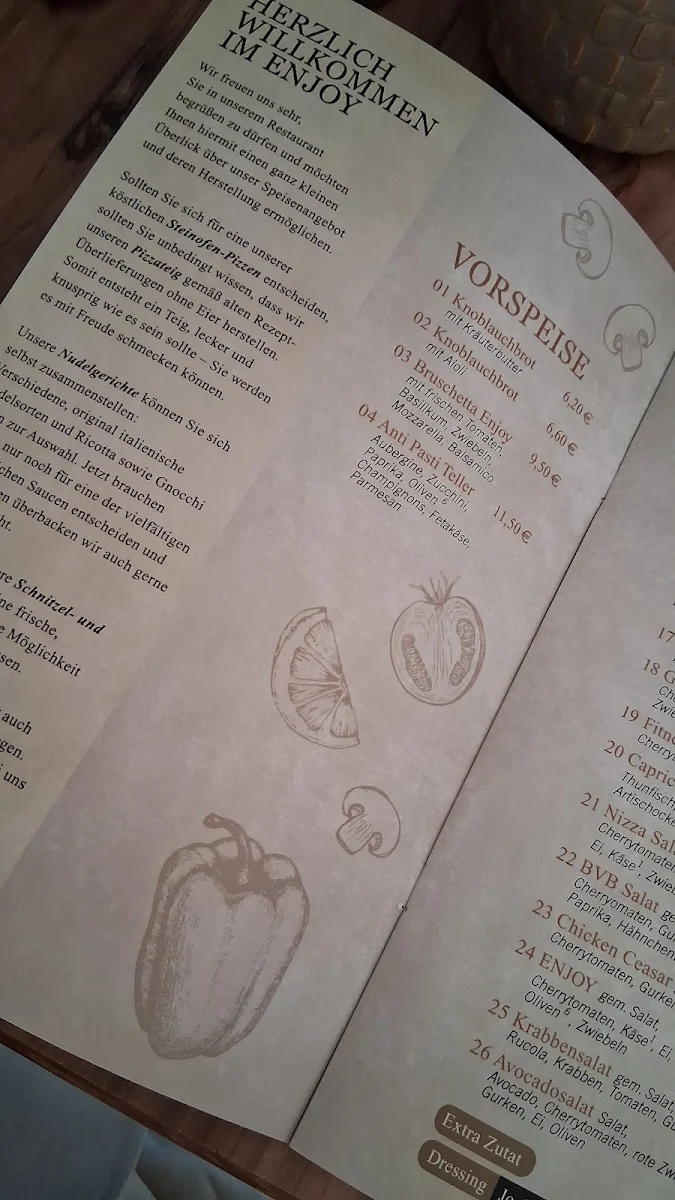 HERZLICH
WILLKOMMEN
IM ENJOY
Wir freuen uns sehr,
Sie in unserem Restaurant
begrüßen zu dürfen und möchten
Ihnen hiermit einen ganz kleinen
Überlick über unser Speisenangebot
und deren Herstellung ermöglichen.
Sollten Sie sich für eine unserer
köstlichen Steinofen-Pizzen entscheiden,
sollten Sie unbedingt wissen, dass wir
unseren Pizzateig gemäß alten Rezept-
Überlieferungen ohne Eier herstellen.
Somit entsteht ein Teig, lecker und
knusprig wie es sein sollte – Sie werden
es mit Freude schmecken können.
Unsere Nudelgerichte können Sie sich
selbst zusammenstellen:
Verschiedene, original italienische
delsorten und Ricotta sowie Gnocchi
n zur Auswahl. Jetzt brauchen
nur noch für eine der vielfältigen
chen Saucen entscheiden und
en überbacken wir auch gerne
ht.
re Schnitzel- und
ne frische,
e Möglichkeit
sen.
auch
gen.
uns
VORSPEISE
01 Knoblauchbrot 6,20 €
mit Kräuterbutter
02 Knoblauchbrot 6,60 €
mit Aioli
03 Bruschetta Enjoy 9,50 €
mit frischen Tomaten,
Basilikum, Zwiebeln,
Mozzarella, Balsamico
04 Anti Pasti Teller 11,50 €
Aubergine, Zucchini,
Paprika, Oliven 6
Champignons, Fetakäse,
Parmesan
17
18 G
Che
Zwie
19 Fitne
Cherryt
20 Capric
Thunfisch
Artischocke
21 Nizza Sal
Cherrytomaten
Ei, Käse1, Zwieb
22 BVB Salat ge
Cherryomaten, Gu
Paprika, Hähnchen
23 Chicken Ceasar
Cherrytomaten, Gurken
24 ENJOY gem. Salat,
Cherrytomaten, Käse1, Ei,
Oliven 6, Zwiebeln
25 Krabbensalat gem. Salat,
Rucola, Krabben, Tomaten, Gu
26 Avocadosalat Salat,
Avocado, Cherrytomaten, rote Zw
Gurken, Ei, Oliven
Extra Zutat
Dressing